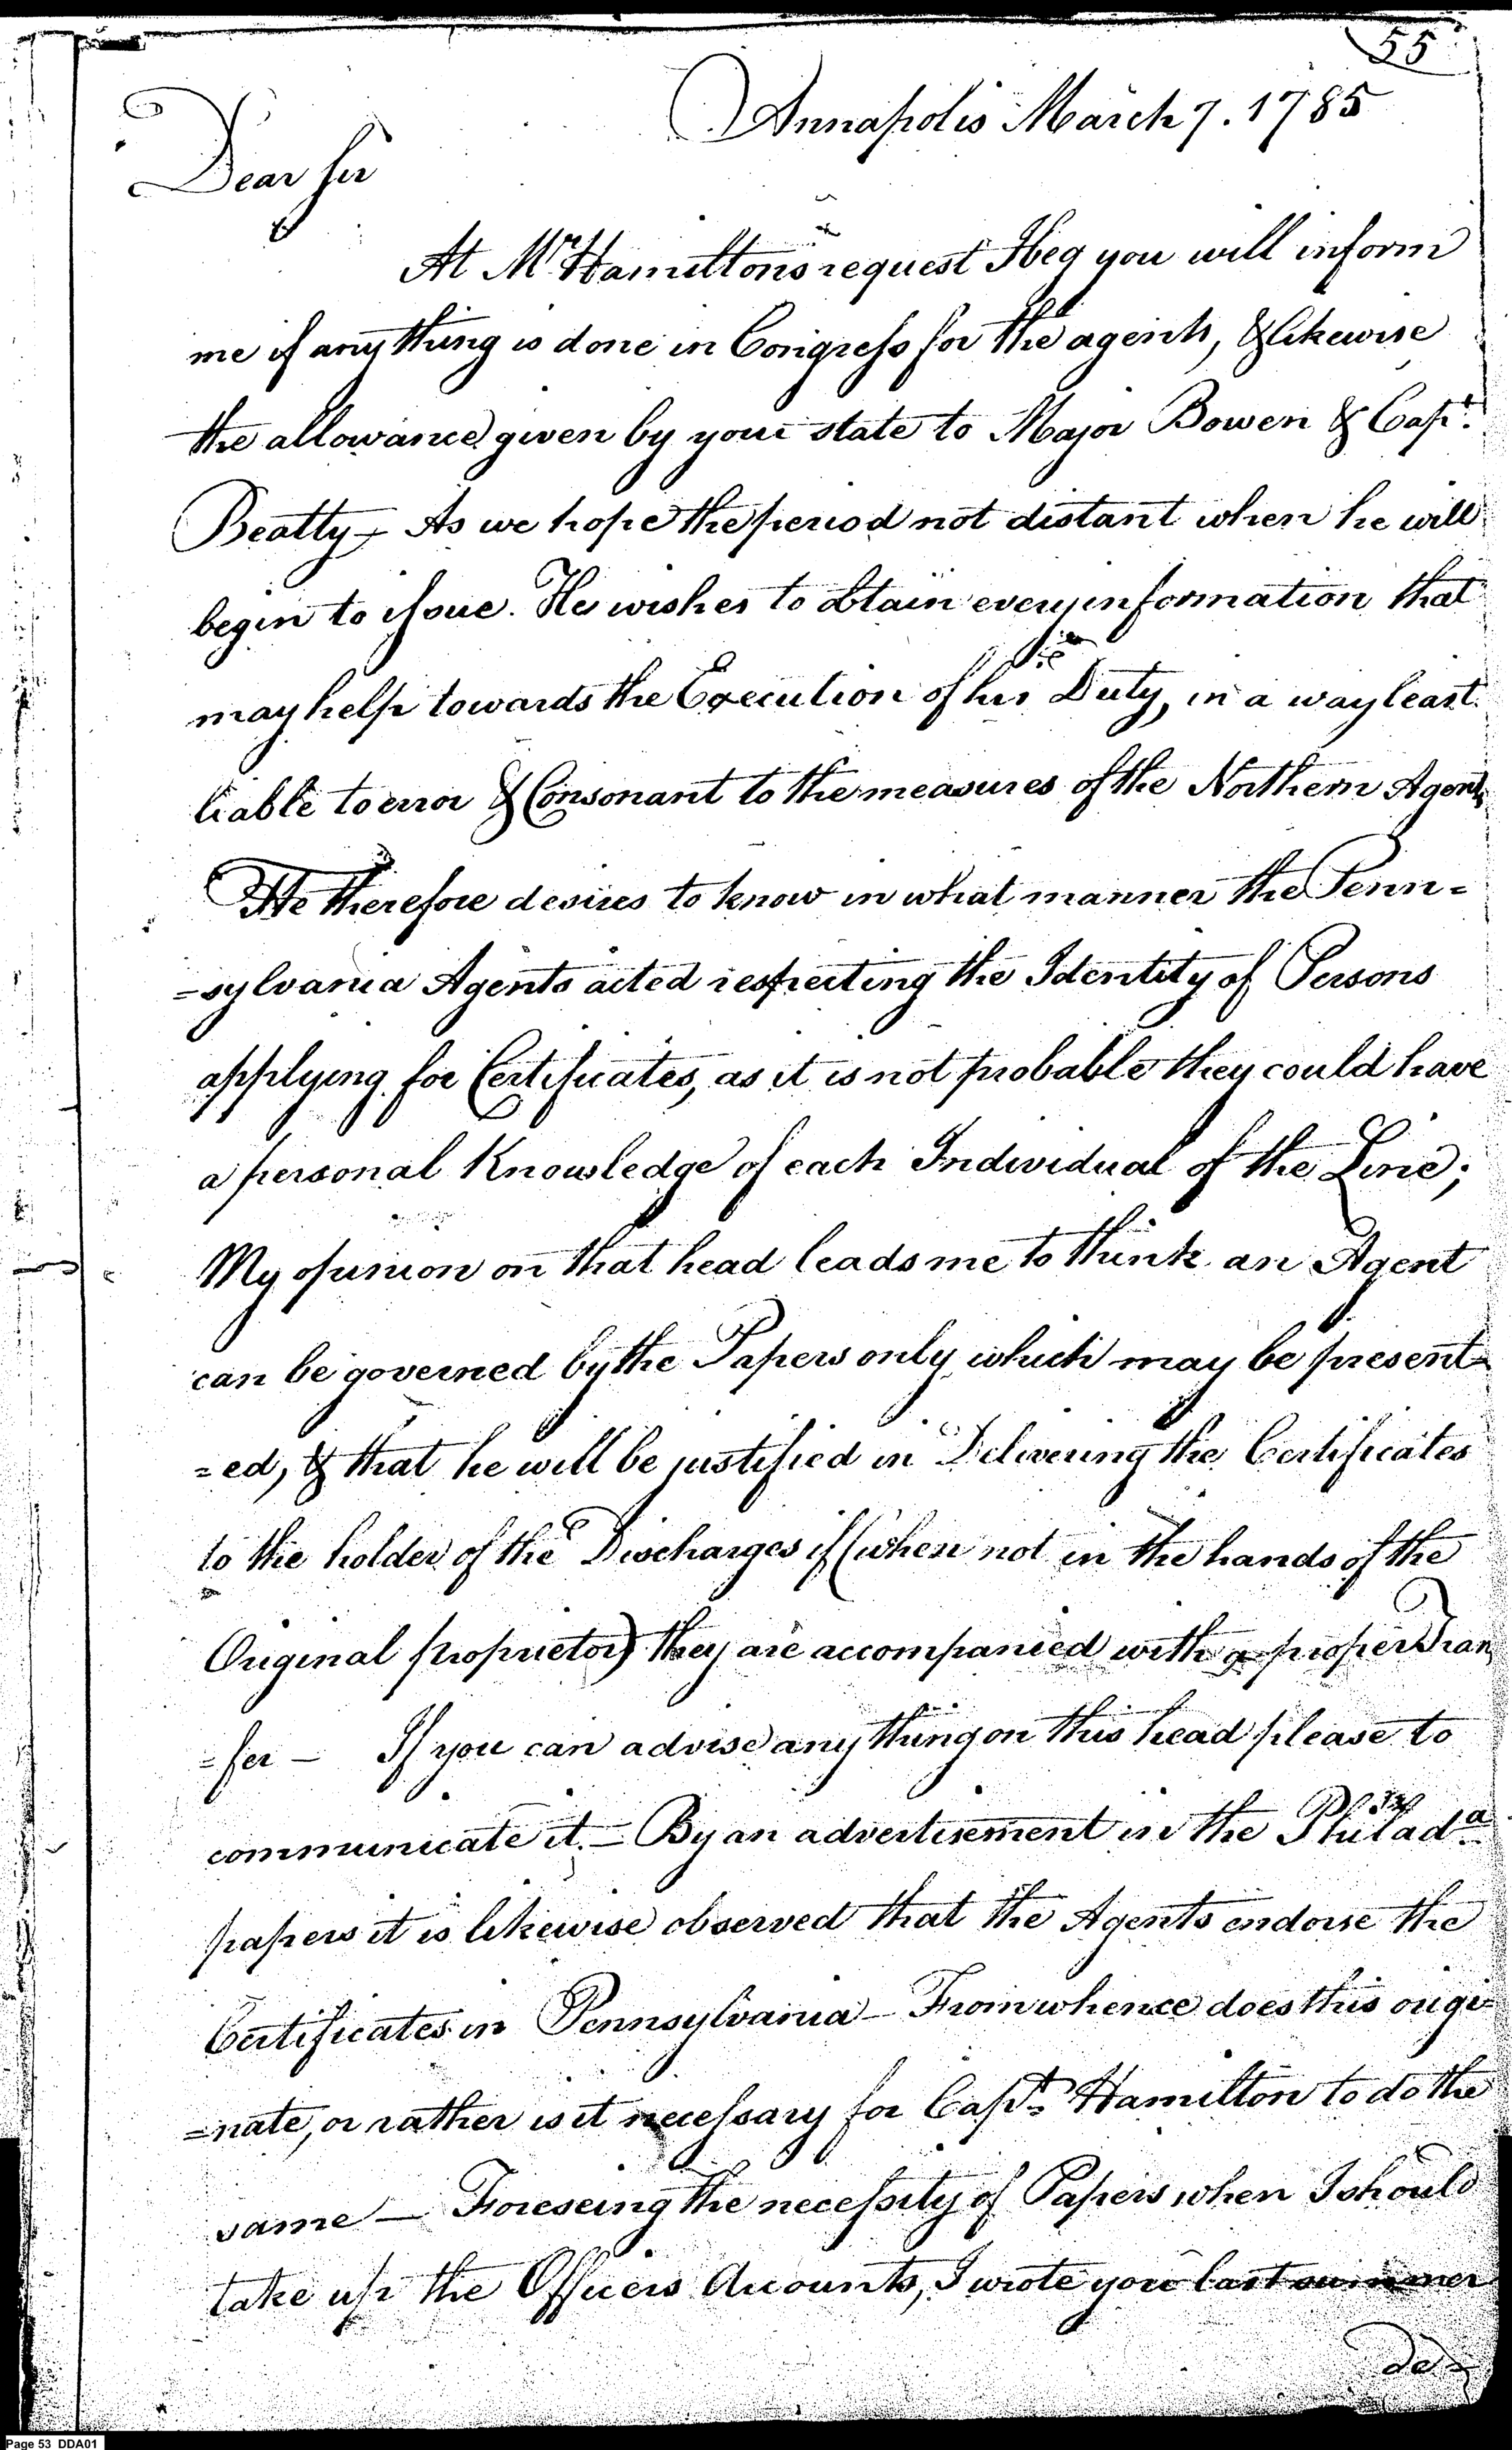 55
Annapolis March 7. 1785
Dear Sir
At Mr Hamiltons request I beg you will inform
me if any thing is done in Congress for the agents, & likewise
the allowance given by your state to Major Bowen & Capt.
Beatty – As we hope the period not distant when he will
begin to issue. He wishes to obtain every information that
may help towards the Execution of his Duty, in a way least
liable to error & Consonant to the measures of the Northern Agents
He therefore desires to know in what manner the Penn=
=sylvania Agents acted respecting the Identity of Persons
applying for Certificates, as it is not probable they could have
a personal Knowledge of each Individual of the Line;
My opinion on that head leads me to think an Agent
can be governed by the Papers only which may be present=
=ed, & that he will be justified in Delivering the Certificates
to the holder of the Discharges if (when not in the hands of the
Original proprietor) they are accompanied with a proper Trans
=fer – If you can advise any thing on this head please to
communicate it. – By an advertisement in the Philada
papers it is likewise observed that the Agents endorse the
Certificates in Pennsylvania – From whence does this origi=
=nate, or rather is it necessary for Capt. Hamilton to do the
same – Foreseeing the necessity of Papers when I should
take up the Officers Accounts, I wrote you last summer
de=
Page 53 DDA01